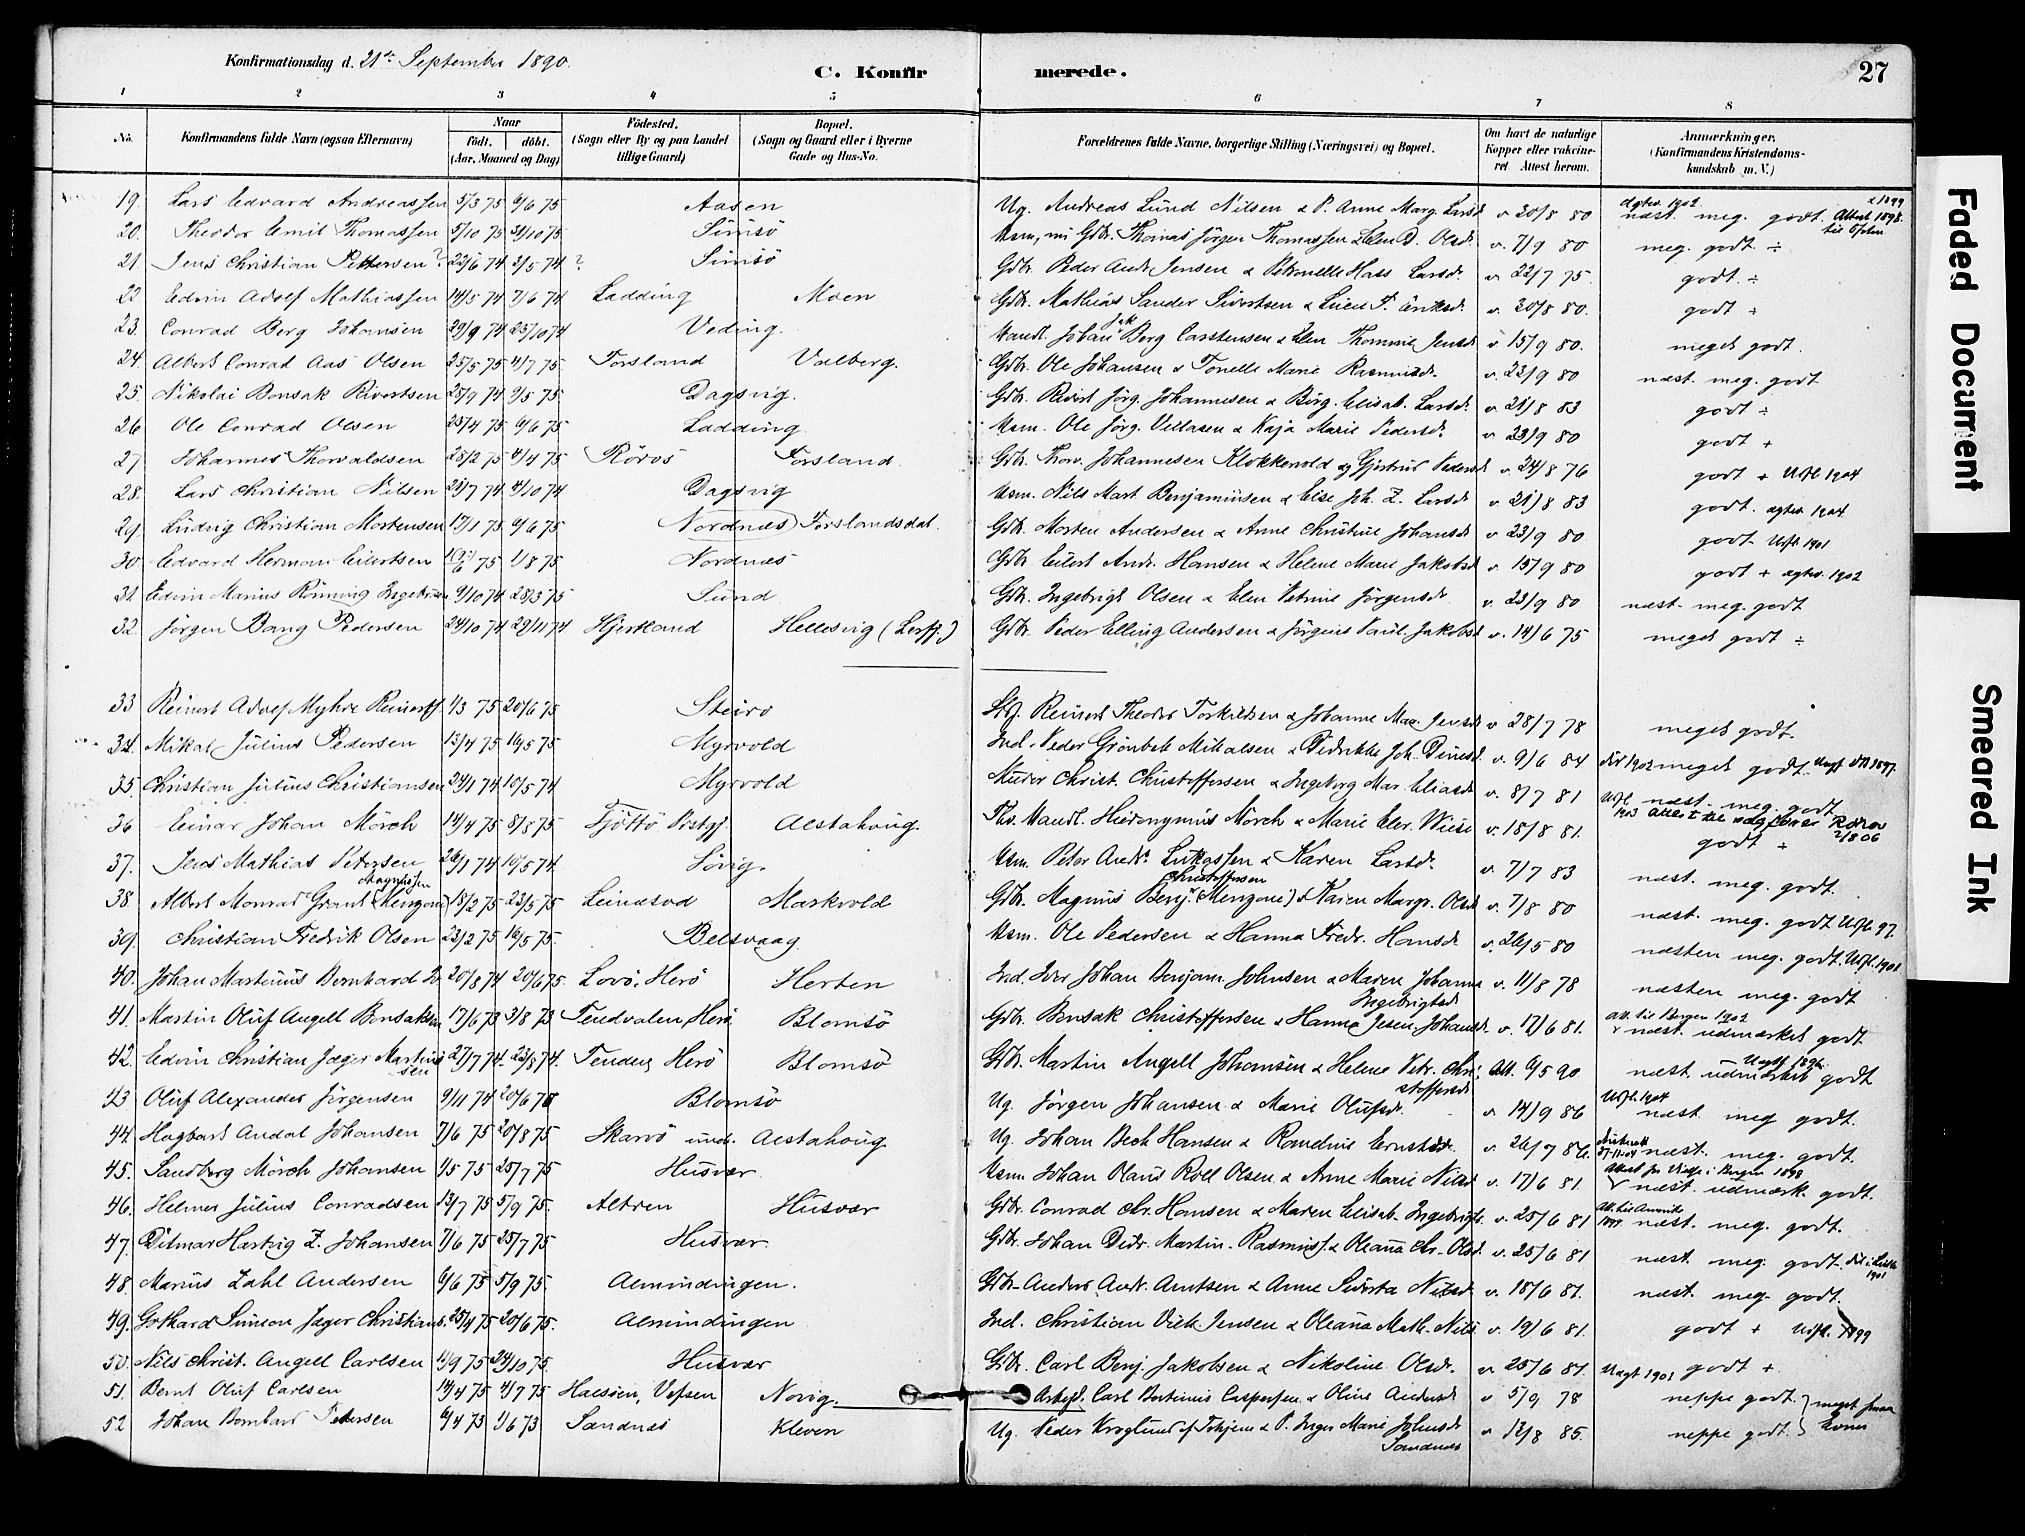 Konfirmationsdag d. 21de September 1890.
C. Konfirmerede.
27
1 2 3 4 5 6 7 8
No. Konfirmandens fulde Navn (ogsaa Efternavn) Naar Födt. döbt. (Aar, Maaned og Dag) Födested. (Sogn eller By og paa Landet tillige Gaard) Bopæl. (Sogn og Gaard eller i Byerne Gade og Hus-No. Forældrenes fulde Navne, borgerlige Stilling (Næringsvei) og Bopæl. Om havt de naturlige Kopper eller vakcineret Attest herom. Anmærkninger. (Konfirmandens Kristendomskundskab m. V.)
19. Lars Edvard Andreassen 5/3 75 6/6 75 Aasen Ug. Andreas Lund Nilsen & P. Anne Marg. Larsd v 20/8 80 næst. meg. godt. Attest 1898
20. Theodor Emil Thomassen 5/10 75 31/10 75 Simsö Gdbr. Thomas Jörgen Thomassen & Elen D. Olsd. v. 7/9 80 meg. godt ÷
21. Jens Christian Pettersen? 22/6 74 3/5 74? Simsö Gdbr. Peder Andr. Jensen & Petronelle Hass Larsdr. v. 22/7 75. godt ÷
22. Edvin Adolf Mathiassen 14/5 74 7/6 74 Ladding Moen Gdbr. Mathias Sander Sivertsen & v. 20/8 80. godt +
23. Conrad Berg Johansen 29/9 74 25/10 74 Veding. Handl. Johan Berg Carstensen & Elen Thommine Jensd v 15/9 80. meget godt.
24. Albert Conrad Aas Olsen 25/5 75 4/7 75. Forsland Valberg. Gdbr. Ole Johansen & Tonelle Marie Rasmusdr. v. 22/9 80 næst. meg. godt
25. Nikolai Bensak Rivertsen 28/9 74 9/5 75 Dagsvig. Gdbr. Rivert Jörg. Johannesen & Birg. Elisab. Larsd. v. 21/8 83 godt ÷
26 Ole Conrad Olsen 25/4 75 6/6 75 Ladding. Hsm. Ole Jörg. & Kaja Marie Pedersdr v 23/9 80 godt +
27 Johannes Thorvaldsen 28/2 75 4/4 75 Röros Forsland. Gdbr. Thorv. Johannesen Klokkervold og Gjertrud Pedersd v. 24/8 76 godt + Udfl 1904
28. Lars Christian Nilsen 21/7 74 4/10 74 Dagsvig Hsm. Nils Mart. Benjaminsen & Else Joh. Z. Larsdr v. 21/8 83 godt. 1904
29. Ludvig Christian Mortensen 17/1 75 6/6 75 Nordnæs Forslandsdal. Gdbr. Morten Andersen & Anne Christine Johansd v 23/9 80 godt Udfl 1901
30. Edvard Herman Eilertsen 75 1/8 75 Nordnæs Gdbr Eilert Andr. Hansen & Helene Marie Jakobsd v. 15/9 80 godt + 1902
31. Edvin Marius Rönning 9/10 74 28/3 75 Sund. Gdbr. Ingebrigt Olsen & Elen Petrine Jörgensdr. v. 23/9 80 næst. meg. godt
32. Jörgen Bang Pedersen 24/10 74 29/11 74 Hjertland Hellesvig Gdbr. Peder Elling Andersen & Jörgine Paul. Jakobsd v. 14/6 75 meget godt ÷
33 Reinert Adolf Myhre 1/3 75 20/6 75 Steiro Reinert Theodor Torkildsen & Johanne Mar. Jensd v 28/7 78 meget godt.
34. Mikal Julius Pedersen 13/4 75 16/5 75 Myrvold Ind. Peder Grönbek Mikalsen & Didrikke Joh. v. 9/6 84 1902 meget godt. 1897.
35. Christian Julius Christiansen 24/1 74 10/5 74 Myrvold Christ. Christoffersen & Ingeborg Mar. Eliasd v. 8/7 81 næst. meg. godt
36 Einar Johan Mörch 14/4 75 8/8 75 Tjöttö Prstgj. Alstahoug. Handl. Hieronymus Mörch & Marie Elen. Wiese v. 18/8 81. 1903 godt ÷ 2/8 06
37. Jens Mathias Petersen 26/1 74 10/5 74 Sövig. Hsm. Peter Andr. Lukassen & Karen Larsdr. v. 7/7 83 næst. meg. godt.
38 Albert Monrad Grant Magnussen 18/2 75 23/5 75 Leinesod Markvold Gdbr. Magnus Benj. Christoffersen & Karen Margr. Olsd v. 7/8 80 næst. meg. godt Udfl. 97.
39. Christian Fredrik Olsen 23/2 75 16/5 75. Belsvaag. Hsm. Ole Pedersen & Hanna Fredr. Hansd v. 26/5 80 næsten meg. godt. Udfl. 1901
40. Johan Martinus Bernhard 20/8 74 20/6 75. Lovö, Herö Herten Ind. Iver Johan Benjam. Johnsen & Maren Johanna Ingebrigtsd v. 11/8 78 næsten meg. godt
41. Martin Oluf Angell Bensaksen 17/6 73 3/8 73 Tendvalen, Herö. Blomsö Gdbr. Bensak Christoffersen & Hanna Johansd. v. 17/6 81. att. til Bergen 1902 næst. udmærket godt
42. Edvin Christian Jæger Martinussen 27/7 74 23/8 74. Tenden, Herö Blomsö Gdbr. Martin Angell Johansen & Helene Petr. Christoffersd att. 6/5 90 næst. udmærket godt
43 Oluf Alexander Jörgensen 9/11 74 20/6 Blomsö Ug. Jörgen Johansen & Marie Olufsdr. v 14/9 86 Udfl. 1904 næst. meg. godt.
44. Hagbart Andal Johansen 7/6 75 20/8 75 Skarvö Alstahoug Ug. Johan Bech Hansen & v. 26/7 86. næst. meg. godt.
45. Sandberg Mörch Johansen 1/5 75 25/7 75 Husvær Hsm Johan Olaus Roll Olsen & Anne Marie Nilsd v. 17/6 81. Attest i Bergen 1898 næst. udmærk. godt.
46. Helmer Julius Conradsen 13/7 75 5/9 75. Altren Husvær Gdbr. Conrad Chr. Hansen & Maren Elisab. Ingebrigts. v. 25/6 81 næst. meg. godt.
47. Ditmar Hartvig Z. Johansen 7/6 75 25/7 75 Husvær. Gdbr. Johan Didr. Martin. Rasmuss. & Oleana Chr. Olsd. v. 25/6 81 næst. meg. godt. 1901
48. Marius Zahl Andersen 6/6 75 5/9 75. Almindingen. Gdbr. Anders Andr. Arntsen & Anne Siverta Nilsd v. 18/6 81. næst. meg. godt.
49. Gothard Simon Jæger Christians. 25/4 75 20/6 75. Almindingen Ind. Christian Vick Jensen & Oleana Math. Nils v. 19/6 81. godt + Udfl. 1899
50. Nils Christ. Angell Carlsen 11/9 75 24/10 75 Husvær Gdbr. Carl Benj. Jakobsen & Nikoline Olsdr. v. 25/6 81. godt +
51. Bernt Oluf Carlsen 14/4 75 4/7 75 Halsöen, Vefsen Novig. Arbeid. Carl Bertinus Caspersen & Oline Andersd v 5/9 78 Udgt 1901 neppe godt. } meget smaa
52 Johan Bernhard Petersen 6/4 73 1/6 73 Sandnes Kleven Ug. Peder Kroglund af & P. Inger Marie Johnsd Sandnes v 12/8 85. neppe godt. } Evner
Faded Document
Smeared Ink